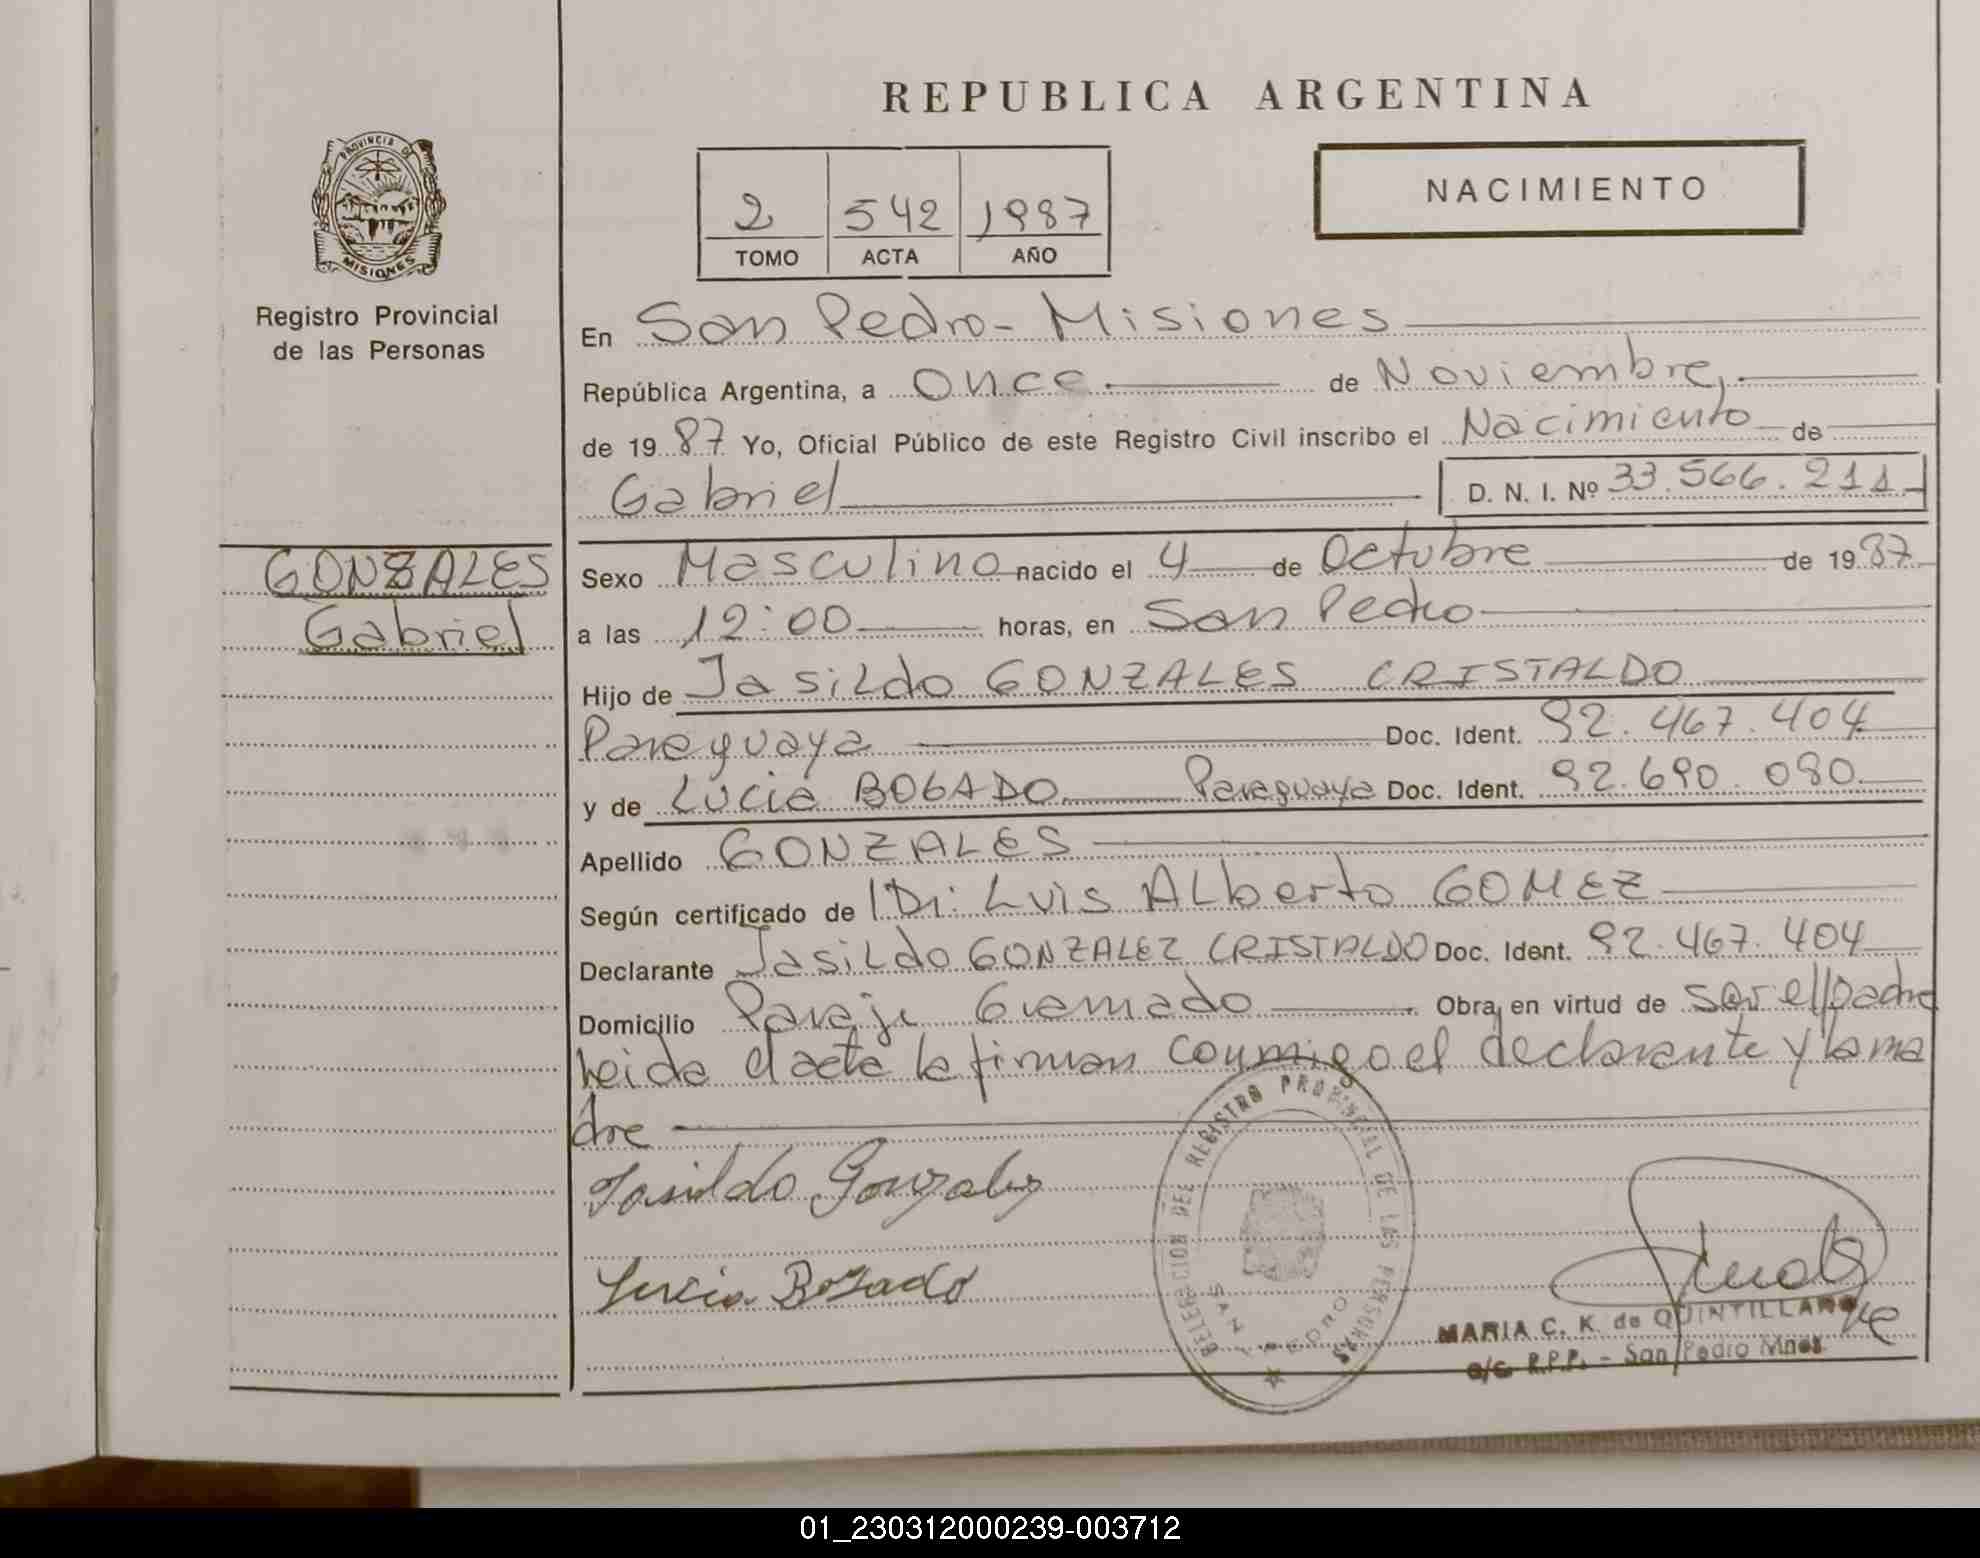 REPUBLICA ARGENTINA
PROVINCIA DE
MISIONES
Registro Provincial
de las Personas
2 542 1987
TOMO ACTA AÑO
NACIMIENTO
En San Pedro - Misiones
República Argentina, a once de Noviembre,
de 1987 Yo, Oficial Público de este Registro Civil inscribo el Nacimiento de
Gabriel D. N. I. Nº 33.566.211
GONZALES
Gabriel
Sexo Masculino nacido el 4 de Octubre de 1987
a las 12:00 horas, en San Pedro
Hijo de Jasildo GONZALES CRISTALDO
Paraguaya Doc. Ident. 92.467.404
y de Lucia BOGADO Paraguaya Doc. Ident. 92.690.080
Apellido GONZALES
Según certificado de Dr. Luis Alberto GOMEZ
Declarante Jasildo GONZALEZ CRISTALDO Doc. Ident. 92.467.404
Domicilio Paraje Gramado Obra en virtud de ser el padre
leida el acta la firman conmigo el declarante y la ma
dre
Jasildo Gonzalez
Lucia Bogado
DELEGACION DEL REGISTRO PROVINCIAL DE LAS PERSONAS
SAN PEDRO
MARIA C. K. de QUINTILLAN
a/c R.P.P. - San Pedro Mnes.
01_230312000239-003712